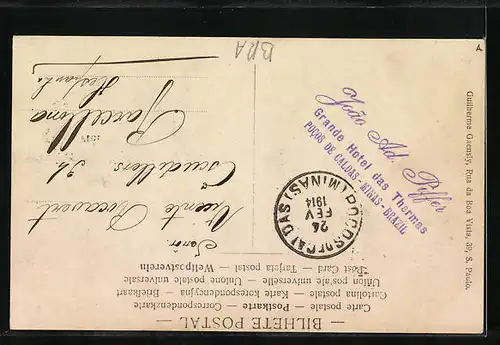 BILHETE POSTAL
Carte postale — Postkarte — Correspondenzkarte
Cartolina postale — Karte korespondencyjna — Briefkaart
Union postale universelle — Unione postale universale
Post Card — Tarjeta postal — Weltpostverein
Senõr
Vicente Rocavert
Escudillers 32
Barcellona
Hespanha
POÇOS DE CALDAS (MINAS)
24
FEV
1914
João Ad. Piffer
Grande Hotel das Thermas
POÇOS DE CALDAS-MINAS-BRAZIL
Guilherme Gaensly, Rua da Boa Vista, 39, S. Paulo.
BRA